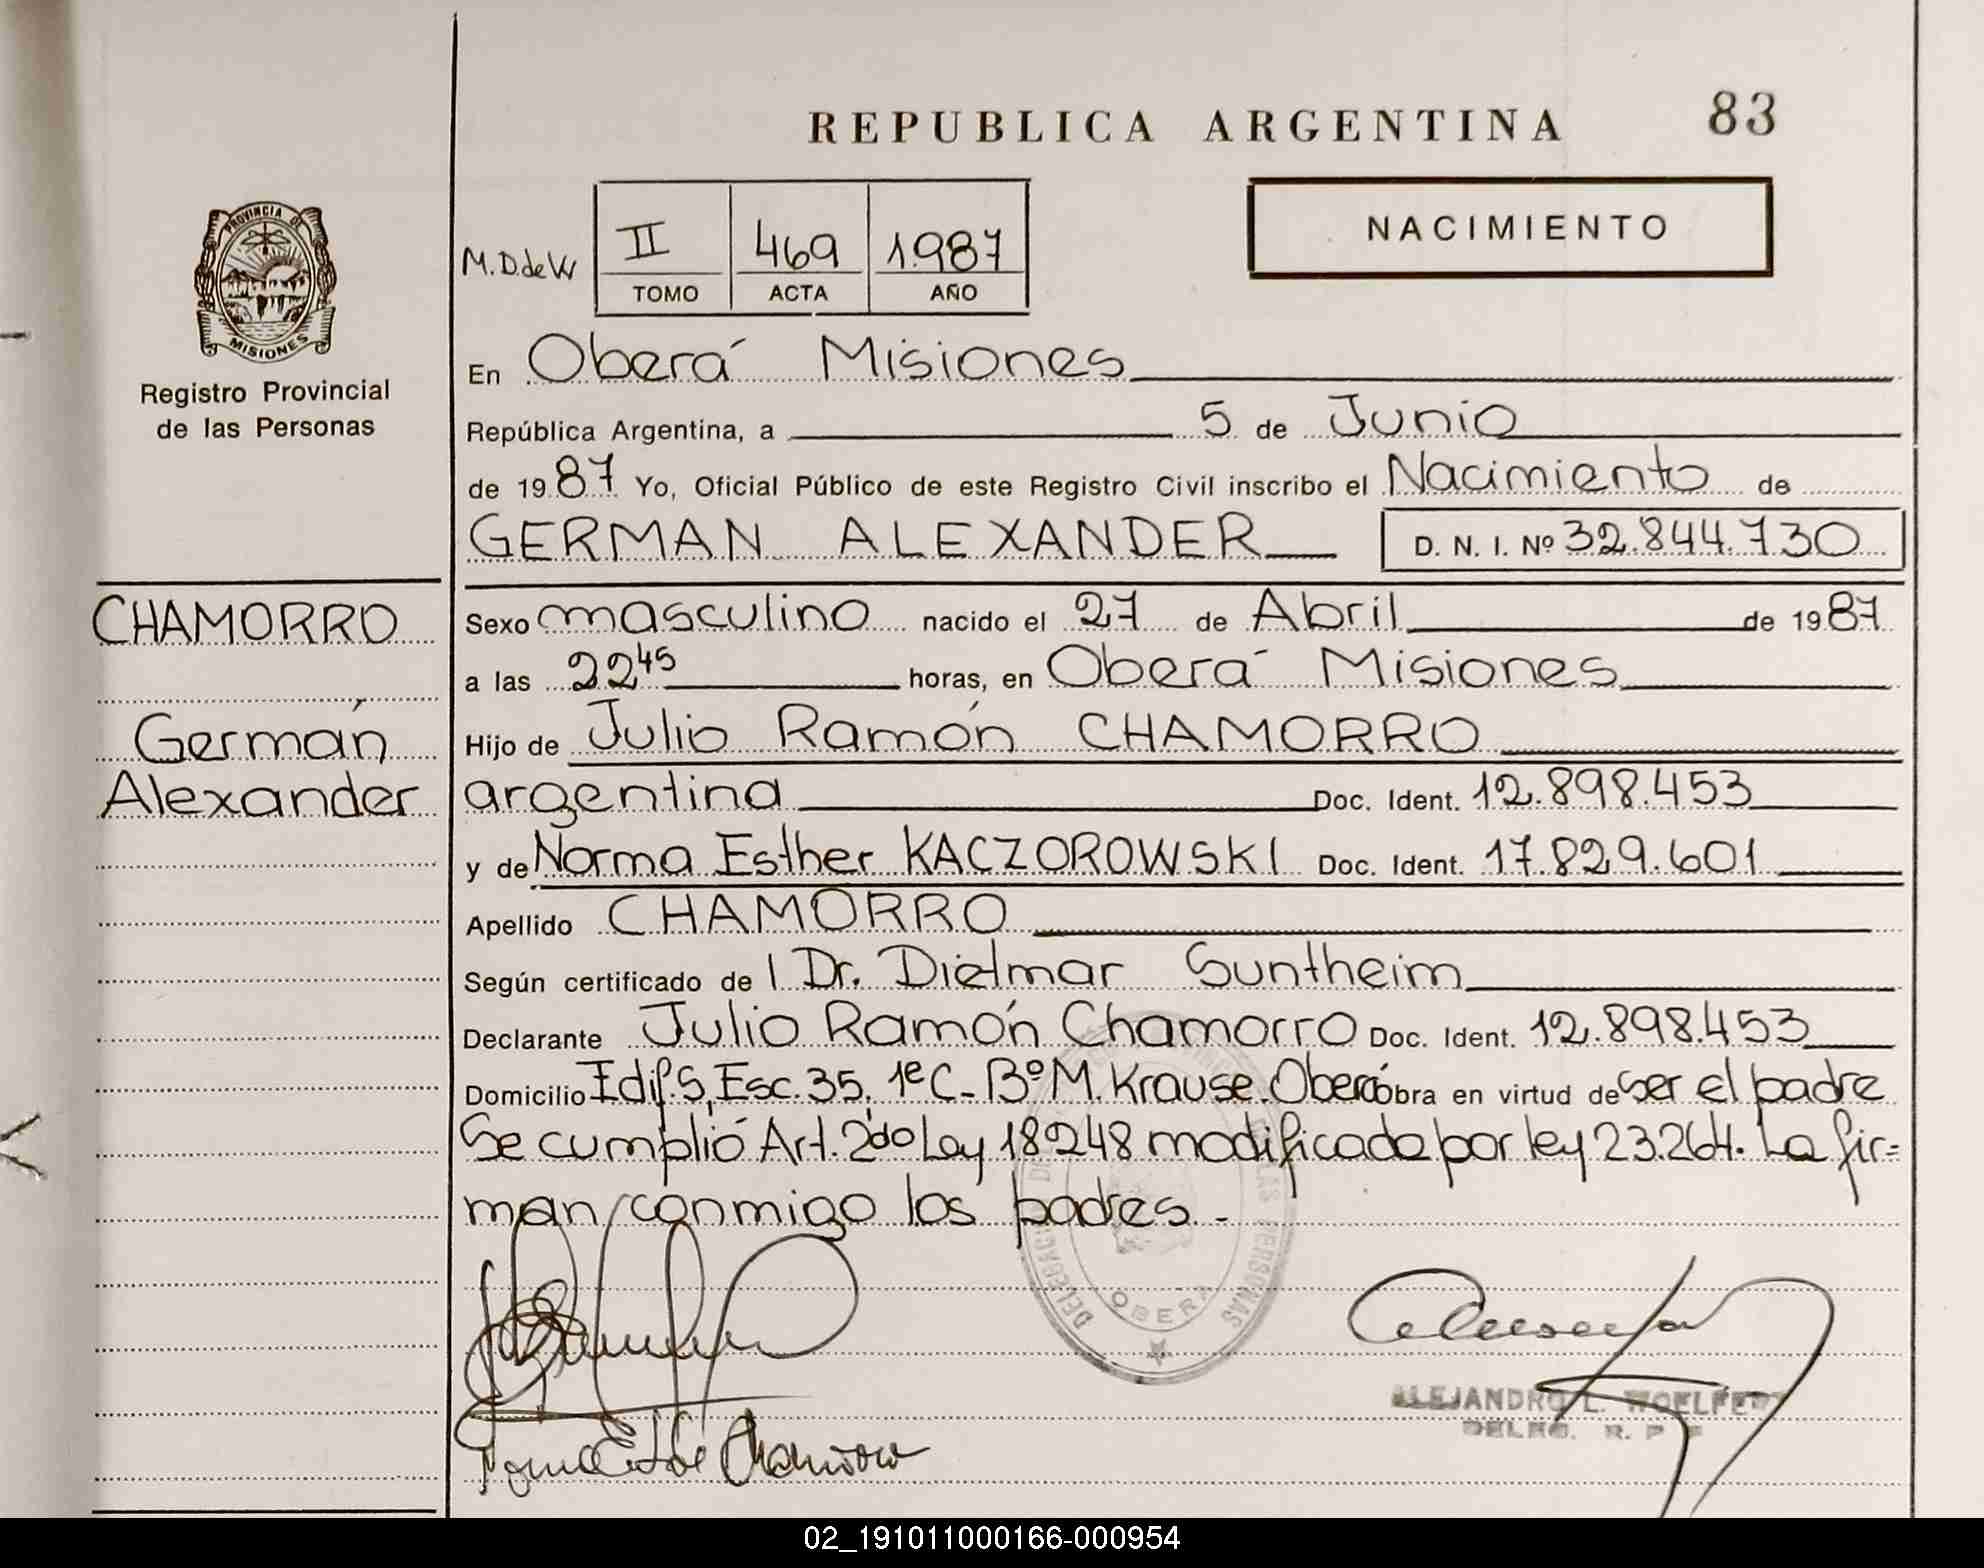 REPUBLICA ARGENTINA 83
PROVINCIA DE
MISIONES
Registro Provincial
de las Personas
M.D.deW II 469 1.987
TOMO ACTA AÑO
NACIMIENTO
En Oberá Misiones
República Argentina, a 5 de Junio
de 1987 Yo, Oficial Público de este Registro Civil inscribo el Nacimiento de
GERMAN ALEXANDER D. N. I. Nº 32.844.730
CHAMORRO
Germán
Alexander
Sexo masculino nacido el 27 de Abril de 1987
a las 22 45 horas, en Oberá Misiones
Hijo de Julio Ramón CHAMORRO
argentina Doc. Ident. 12.898.453
y de Norma Esther KACZOROWSKI Doc. Ident. 17.829.601
Apellido CHAMORRO
Según certificado de l Dr. Dietmar Suntheim
Declarante Julio Ramón Chamorro Doc. Ident. 12.898.453
Domicilio Edif.5, Esc.35, 1ºC-BºM.Krause.Oberá obra en virtud de ser el padre
Se cumplió Art. 2do Ley 18248 modificado por ley 23.264. La fir=
man conmigo los padres.-
OBERA
ALEJANDRO L. WOELFERT
DELEG. R. P
02_191011000166-000954